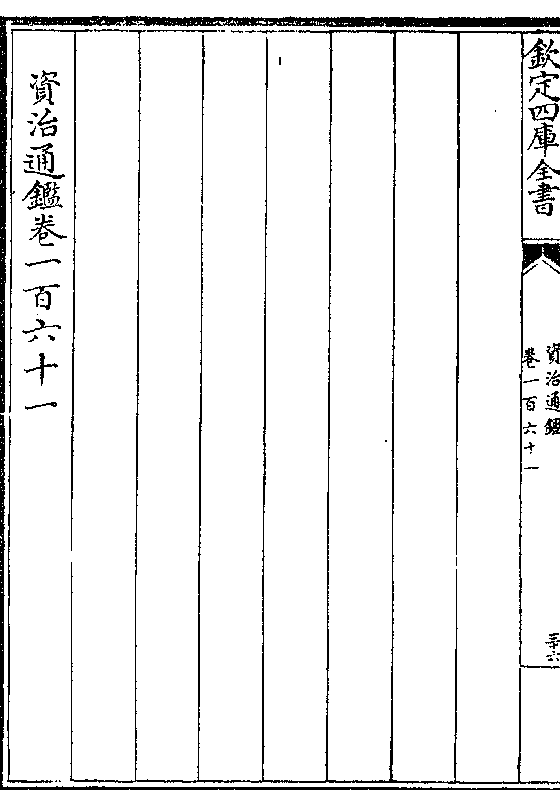 欽定四庫全書
資治通鑑
卷一百六十一
三十六
資治通鑑卷一百六十一